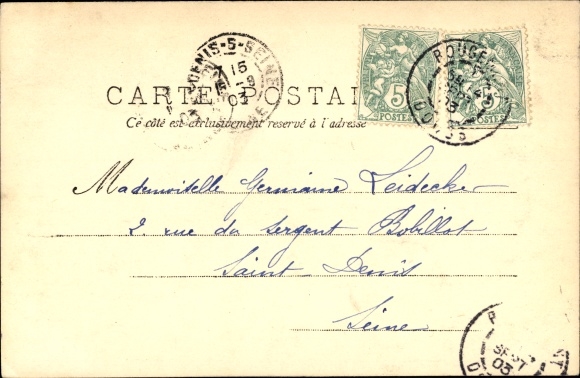 CARTE POSTALE
Ce côté est exclusivement reservé à l'adresse
Mademoiselle Germaine Leidecker
2. rue du Sergent Bobillot
Saint-Denis
Seine
ST-DENIS-S-SEINE
15
03
5
POSTES
5
POSTES
DOUBS
SEPT
03